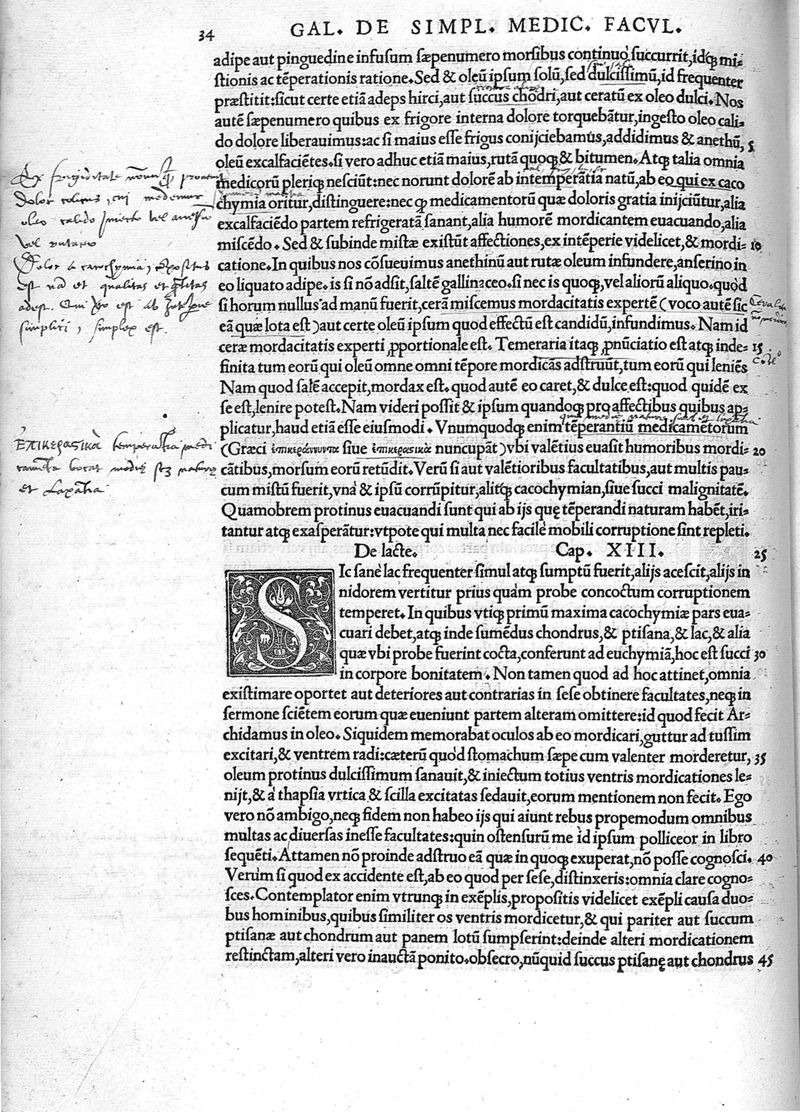 34 GAL. DE SIMPL. MEDIC. FACVL.
adipe aut pinguedine infusum sæpenumero morsibus continuo succurrit, idqꝫ mi-
stionis ac tẽperationis ratione. Sed & oleũ ipsum solũ, sed dulcissimũ, id frequenter
præstitit: sicut certe etiã adeps hirci, aut succus chodri, aut ceratũ ex oleo dulci. Nos
autẽ sæpenumero quibus ex frigore interna dolore torquebãtur, ingesto oleo cali-
do dolore liberauimus: ac si maius esse frigus conijciebamus, addidimus & anethũ, 5
oleũ excalfaciẽtes. si vero adhuc etiã maius, rutã quoqꝫ & bitumen. Atqꝫ talia omnia
medicorũ pleriqꝫ nesciũt: nec norunt dolorẽ ab intemperãtia natũ, ab eo qui ex caco
chymia oritur, distinguere: nec qꝫ medicamentorũ quæ doloris gratia inijciũtur, alia
excalfaciẽdo partem refrigeratã sanant, alia humorẽ mordicantem euacuando, alia
miscẽdo. Sed & subinde mistæ existũt affectiones, ex intẽperie videlicet, & mordi- 10
catione. In quibus nos cõsueuimus anethinũ aut rutæ oleum infundere, anserino in
eo liquato adipe. is si nõ adsit, saltẽ gallinaceo. si nec is quoqꝫ, vel aliorũ aliquo. quod
si horum nullus ad manũ fuerit, cerã miscemus mordacitatis expertẽ (voco autẽ sic
eã quæ lota est) aut certe oleũ ipsum quod effectũ est candidũ, infundimus. Nam id
ceræ mordacitatis experti ꝓportionale est. Temeraria itaqꝫ ꝓnũciatio est atqꝫ inde- 15
finita tum eorũ qui oleũ omne omni tẽpore mordicãs adstruũt, tum eorũ qui leniẽs
Nam quod salẽ accepit, mordax est. quod autẽ eo caret, & dulce est: quod quidẽ ex
se est, lenire potest. Nam videri possit & ipsum quandoqꝫ pro affectibus quibus ap-
plicatur, haud etiã esse eiusmodi. Vnumquodqꝫ enim tẽperantiũ medicamẽtorum
(Græci ἐπικεράννυντα siue ἐπικεραστικὰ nuncupãt) vbi valẽtius euasit humoribus mordi- 20
cãtibus, morsum eorũ retũdit. Verũ si aut valẽtioribus facultatibus, aut multis pau-
cum mistũ fuerit, vnà & ipsũ corrũpitur, alitqꝫ cacochymian, siue succi malignitatẽ.
Quamobrem protinus euacuandi sunt qui ab ijs quę tẽperandi naturam habẽt, iri-
tantur atqꝫ exasperãtur: vtpote qui multa nec facilè mobili corruptione sint repleti.
De lacte. Cap. XIII. 25
SIc sanè lac frequenter simul atqꝫ sumptũ fuerit, alijs acescit, alijs in
nidorem vertitur prius quàm probe concoctum corruptionem
temperet. In quibus vtiqꝫ primũ maxima cacochymiæ pars eua-
cuari debet, atqꝫ inde sumẽdus chondrus, & ptisana, & lac, & alia
quæ vbi probe fuerint cocta, conferunt ad euchymiã, hoc est succi 30
in corpore bonitatem. Non tamen quod ad hoc attinet, omnia
existimare oportet aut deteriores aut contrarias in sese obtinere facultates, neqꝫ in
sermone sciẽtem eorum quæ eueniunt partem alteram omittere: id quod fecit Ar-
chidamus in oleo. Siquidem memorabat oculos ab eo mordicari, guttur ad tussim
excitari, & ventrem radi: cæterũ quòd stomachum sæpe cum valenter morderetur, 35
oleum protinus dulcissimum sanauit, & iniectum totius ventris mordicationes le-
nijt, & à thapsia vrtica & scilla excitatas sedauit, eorum mentionem non fecit. Ego
vero nõ ambigo, neqꝫ fidem non habeo ijs qui aiunt rebus propemodum omnibus
multas ac diuersas inesse facultates: quin ostensurũ me id ipsum polliceor in libro
sequẽti. Attamen nõ proinde adstruo eã quæ in quoqꝫ exuperat, nõ posse cognosci. 40
Verùm si quod ex accidente est, ab eo quod per sese, distinxeris: omnia clare cogno-
sces. Contemplator enim vtrunqꝫ in exẽplis, propositis videlicet exẽpli causa duo-
bus hominibus, quibus similiter os ventris mordicetur, & qui pariter aut succum
ptisanæ aut chondrum aut panem lotũ sumpserint: deinde alteri mordicationem
restinctam, alteri vero inauctã ponito. obsecro, nũquid succus ptisanę aut chondrus 45